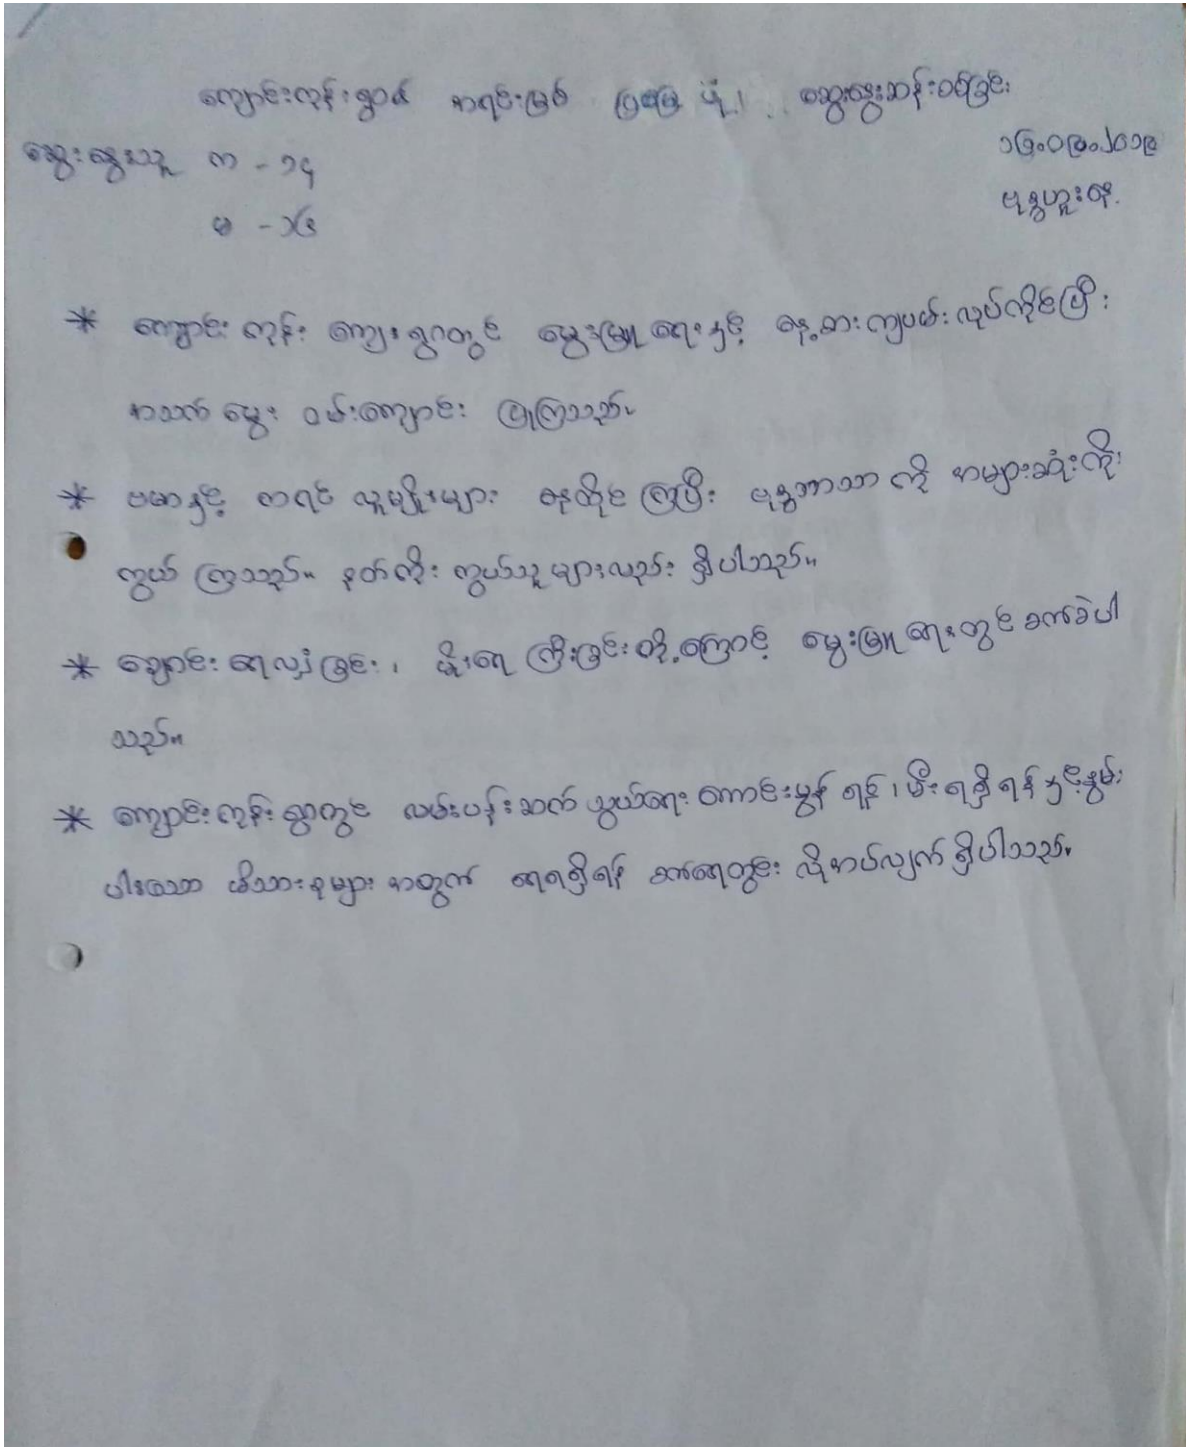 ကျောင်းကုန်းရွာ၏ အရင်းမြစ် ပြမြေပုံ ဆွေးနွေးဆန်းစစ်ခြင်း
၁၆.၀၉.၂၀၁၉
ဆွေးနွေးသူ က - ၁၄
ဗုဒ္ဓဟူးနေ့
မ - ၁၆
* ကျောင်းကုန်း ကျေးရွာတွင် မွေးမြူရေးနှင့် နေ့စားကျပမ်း လုပ်ကိုင်ပြီး
အသက်မွေး ဝမ်းကျောင်း ပြုကြသည်။
* ဗမာနှင့် ကရင် လူမျိုးများ နေထိုင်ကြပြီး ဗုဒ္ဓဘာသာ ကို အများဆုံးကိုး
ကွယ် ကြသည်။ နတ်ကိုး ကွယ်သူ များလည်း ရှိပါသည်။
* ချောင်း ရေလျှံခြင်း ၊ မိုးရေ ကြီးခြင်းတို့ကြောင့် မွေးမြူရေးတွင် ခက်ခဲပါ
သည်။
* ကျောင်းကုန်းရွာတွင် လမ်းပန်းဆက်သွယ်ရေး ကောင်းမွန် ရန် ၊ မီး ရရှိ ရန် နှင့် နွမ်း
ပါးသော မိသားစုများ အတွက် ရေရရှိရန် စက်ရေတွင်း လိုအပ်လျက် ရှိပါသည်။